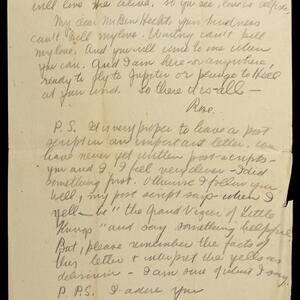 will love me alive, so you see, love is
My dear Mr Ben Hecht, your kindness
can't kill my love. Writing can't kill
my love. And you will send to me when
you can. And I am here or anywhere,
ready to fly to Jupiter or plunge to Hell
at your word. So there it is — all —
Rose.
P.S. It is very proper to leave a post
script in an important letter. We
have never yet written post-scripts —
you and I. I feel very clever — I did
something first.
well, my post script says — when I
yell — be "the Grand Vizier of Little
Things" and say something helpful.
But, please remember the facts of
this letter & interpret the yells as
delirium — I am sure of what I say.
P.P.S. I adore you